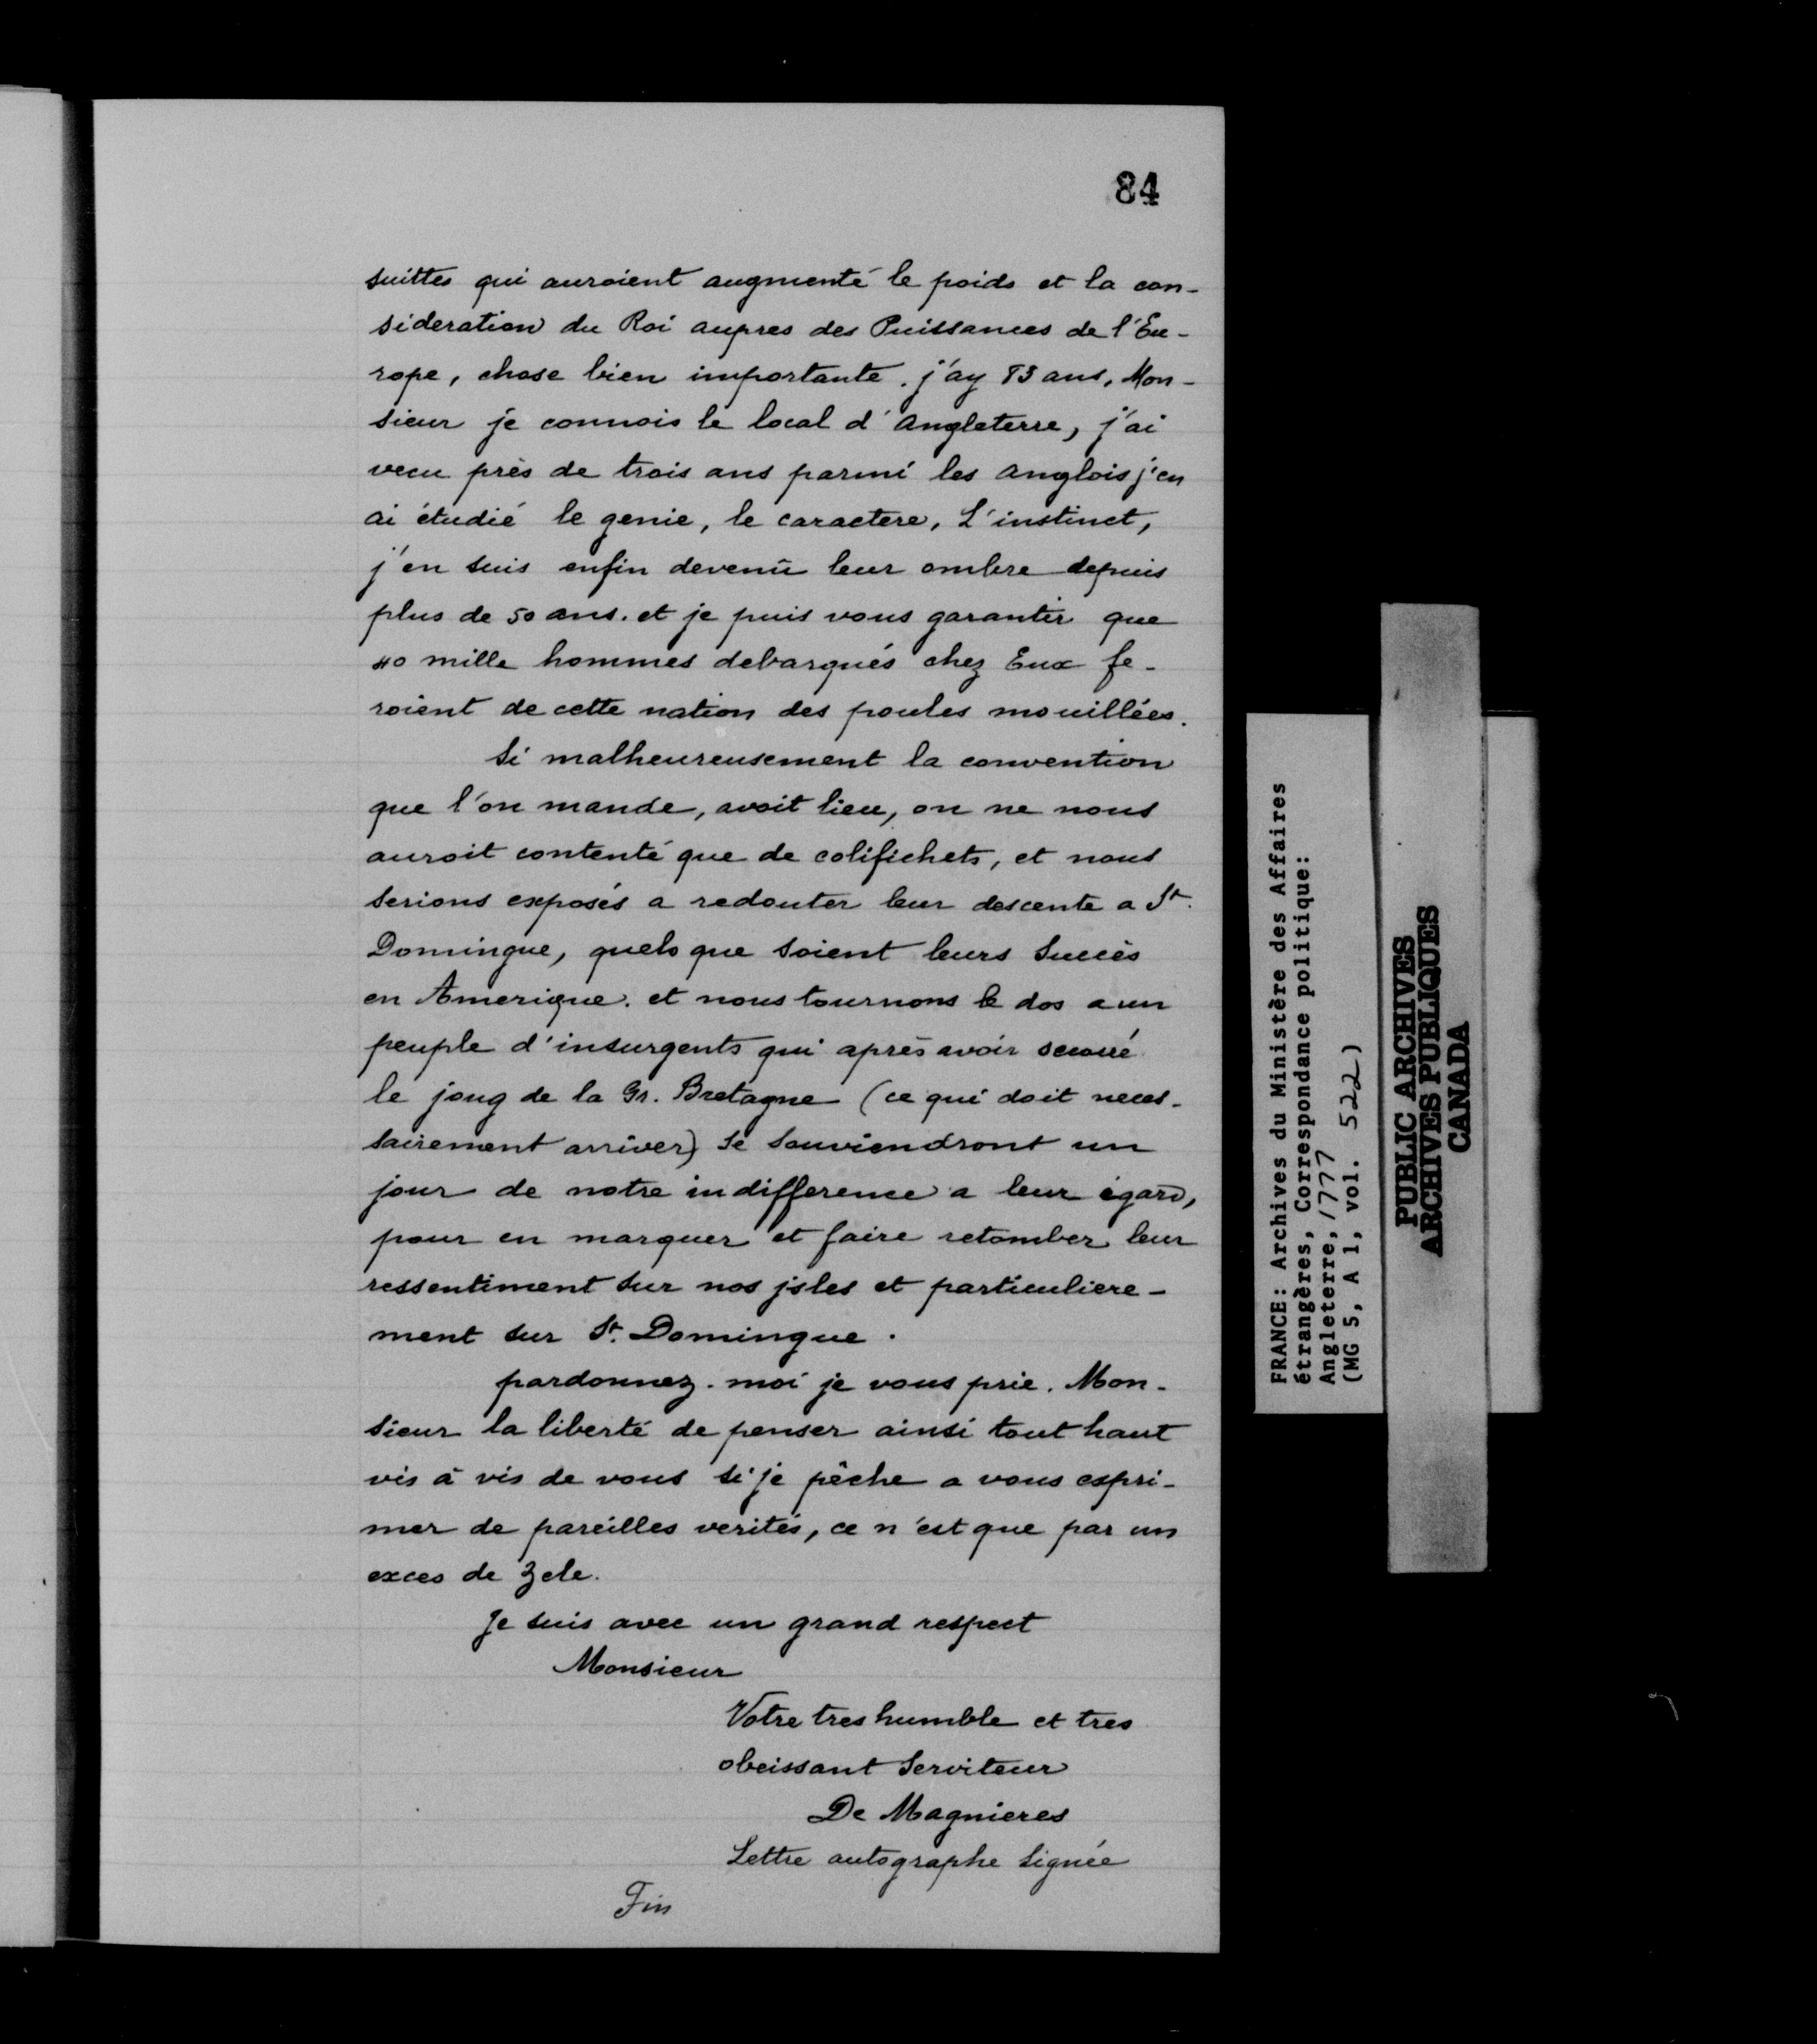 84
suittes qui auroient augmenté le poids et la con-
sideration du Roi aupres des Puissances de l'Eu-
rope, chose bien importante. j'ay 83 ans, Mon-
sieur je connois le local d'Angleterre, j'ai
vecu près de trois ans parmi les anglois j'en
ai étudié le genie, le caractere, L'instinct,
j'en suis enfin devenû leur ombre depuis
plus de 50 ans. et je puis vous garantir que
40 mille hommes debarqués chez Eux fe-
roient de cette nation des poules mouillées.
Si malheureusement la convention
que l'on mande, avoit lieu, on ne nous
auroit contenté que de colifichets, et nous
serions exposés a redouter leur descente a St.
Domingue, quels que soient leurs Succès
en Amerique. et nous tournons le dos a un
peuple d'insurgents qui après avoir secoué
le joug de la Gr. Bretagne (ce qui doit neces-
sairement arriver) se souviendront un
jour de notre indifference a leur égard,
pour en marquer et faire retomber leur
ressentiment sur nos jsles et particuliere-
ment sur St. Domingue.
pardonnez-moi je vous prie. Mon-
sieur la liberté de penser ainsi tout haut
vis à vis de vous si je pêche a vous expri-
mer de pareilles verités, ce n'est que par un
exces de Zele.
Je suis avec un grand respect
Monsieur
Votre tres humble et tres
obeissant Serviteur
De Magnieres
Lettre autographe signée
Fin
FRANCE: Archives du Ministère des Affaires
étrangères, Correspondance politique:
Angleterre, 1777
(MG 5, A 1, vol. 522)
PUBLIC ARCHIVES
ARCHIVES PUBLIQUES
CANADA